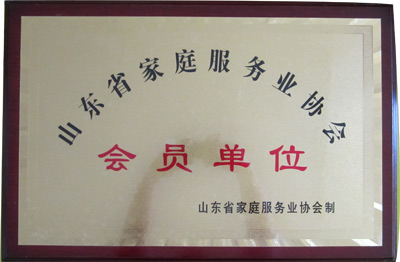 山东省家庭服务业协会
会员单位
山东省家庭服务业协会制